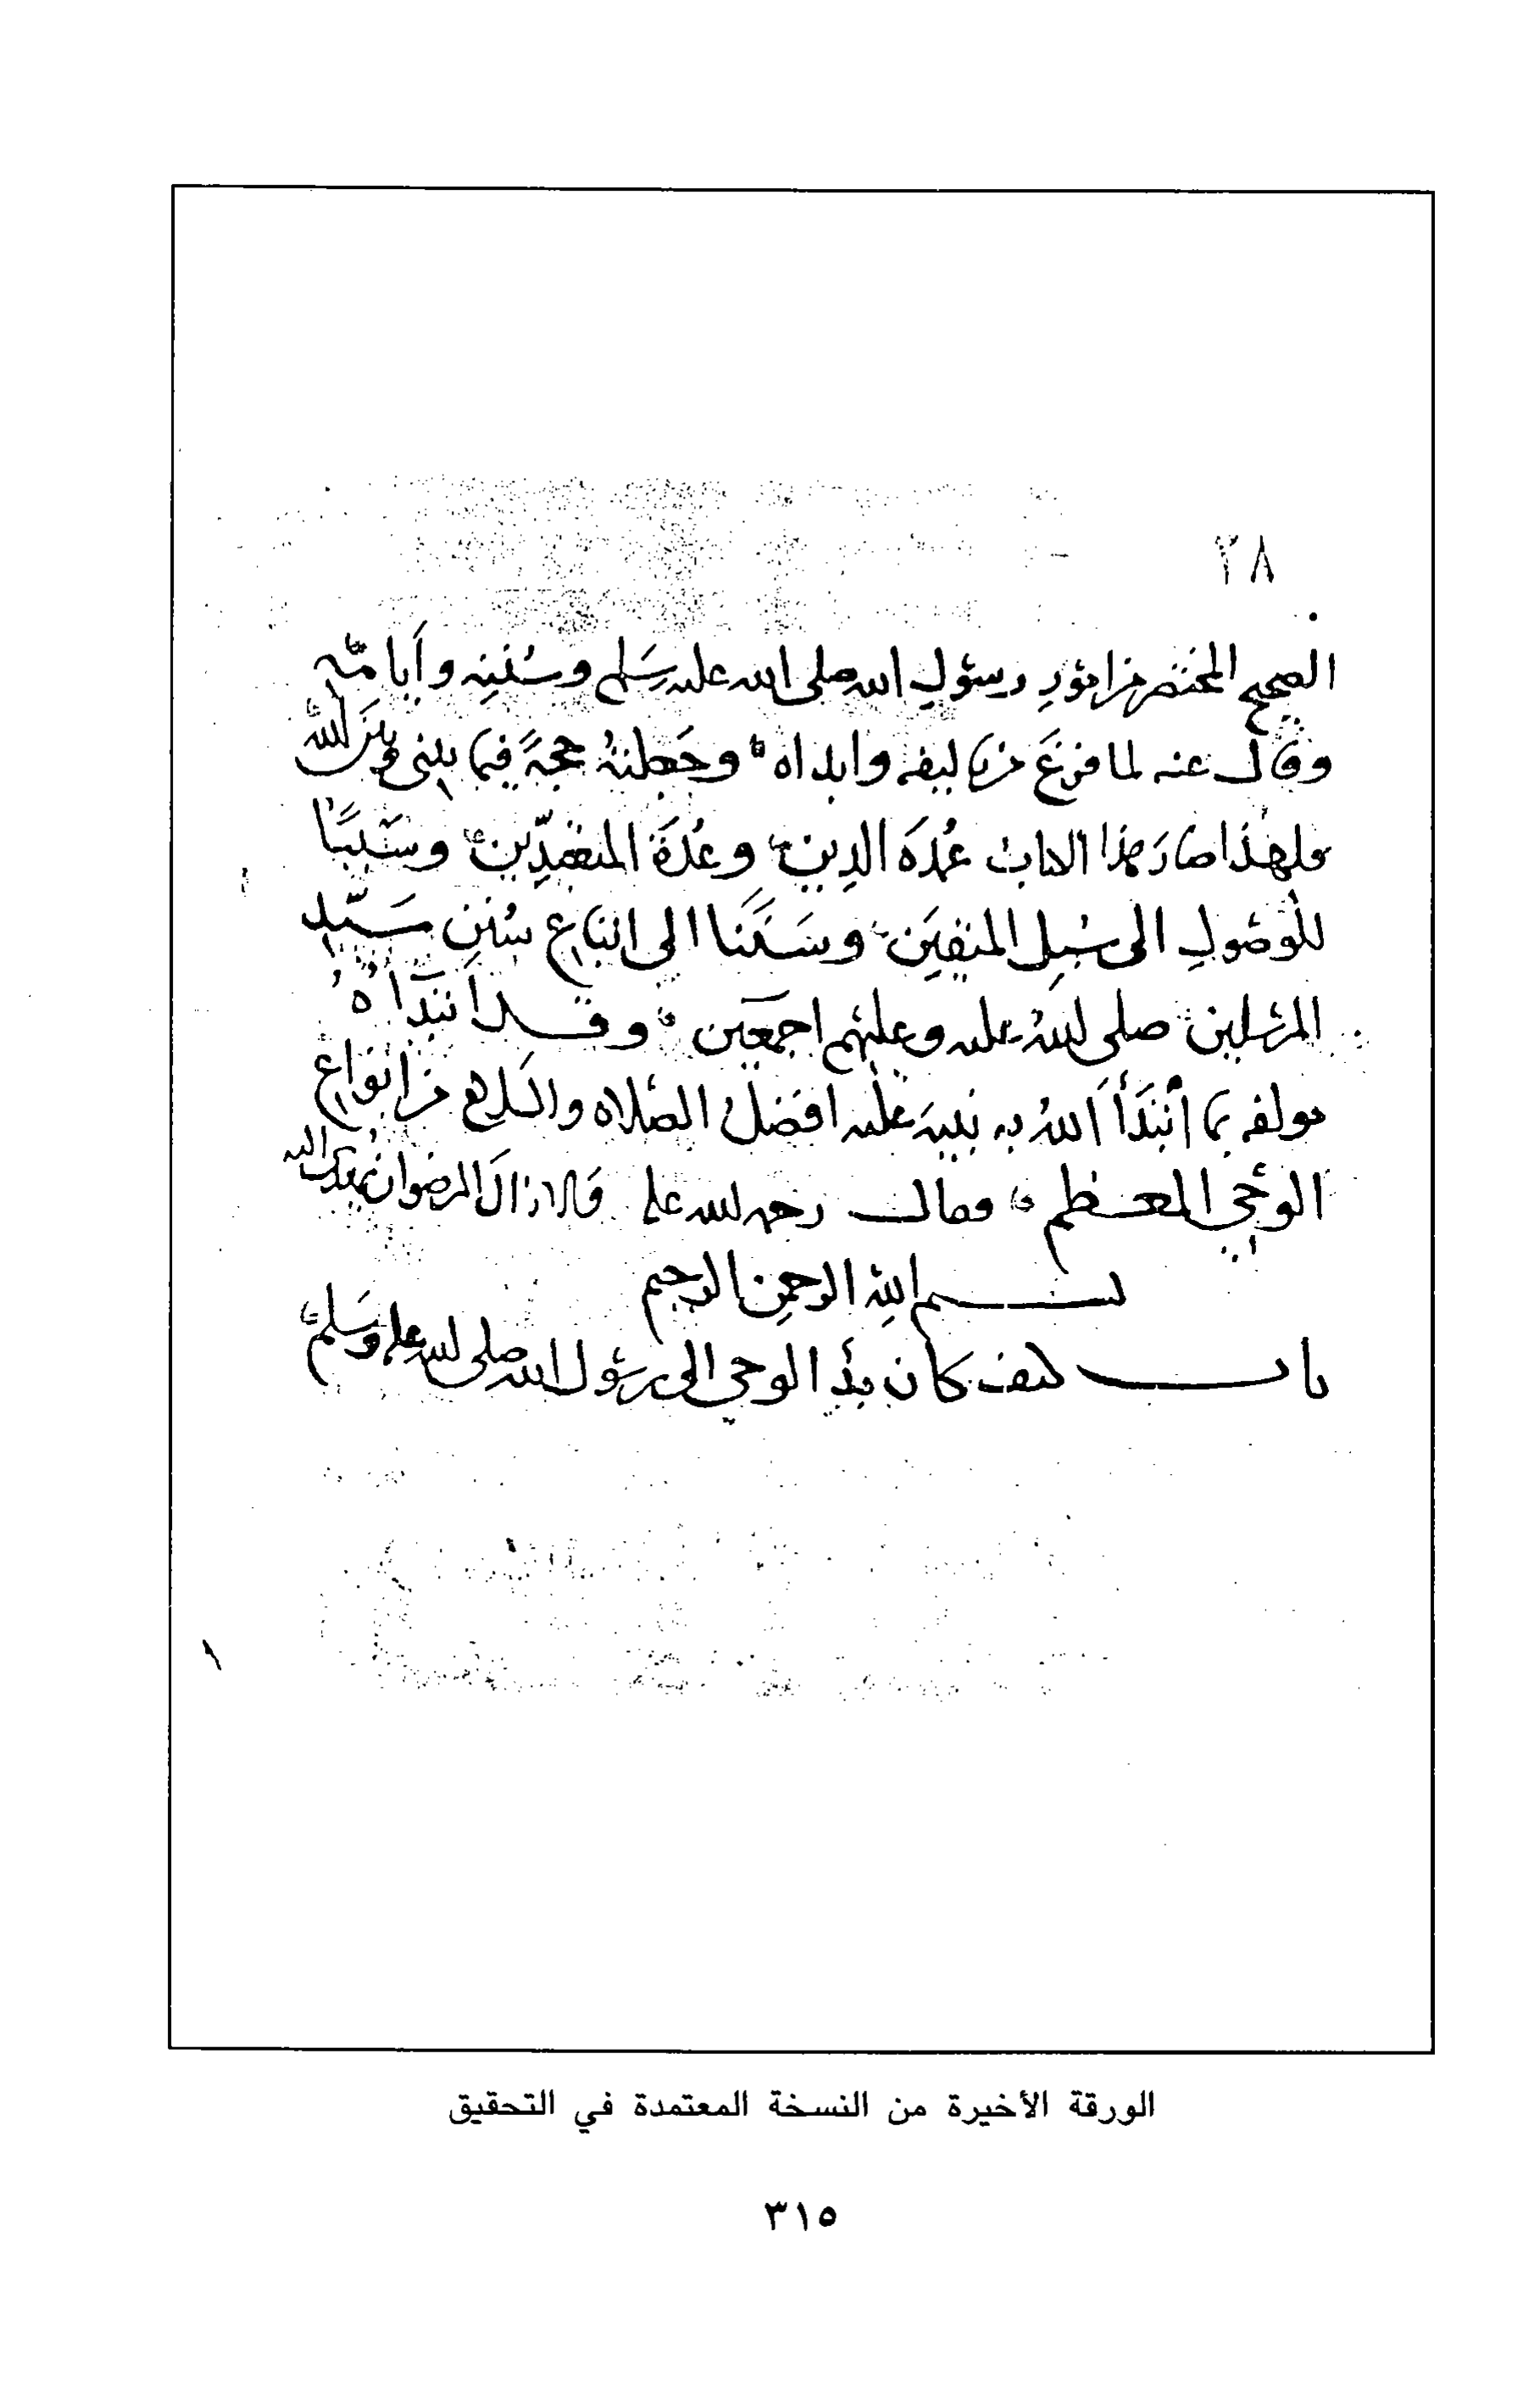 ٢٨
الصحيح المختصر من امورِ رسُولِ الله صلى الله عليه وسَلم وسُنَنِه وأيامه
وقال عنه لما فرغَ من تاليفه وابداه وجَعلتهُ حجةً فيما بيني وبينَ الله
ولهذا صارَ هذا الكتابُ عُمدَة الدين وعُدَةَ المتعبدّين وسَببًا
للوصُولِ الى سُبل المتقين وسَنَدًا الى اتباع سُنَنِ سَيّد
المرسَلين صلى اللهُ عليه وعليهم اجمعَين وقد ابتدَاهُ
مولفه بما أبْتَدَأ اللهُ به نبيَه عليه افضَلُ الصَّلاه والسلام من انوَاع
الوَحْيِ المعظم فقال رحمه الله عليه ولا زال الرضوان
بسم اللهِ الرحمنِ الرحيم
باب كيف كان بدُ الوحي الى رسُول الله صلى الله عليه وسَلم
١
الورقة الأخيرة من النسخة المعتمدة في التحقيق
٣١٥